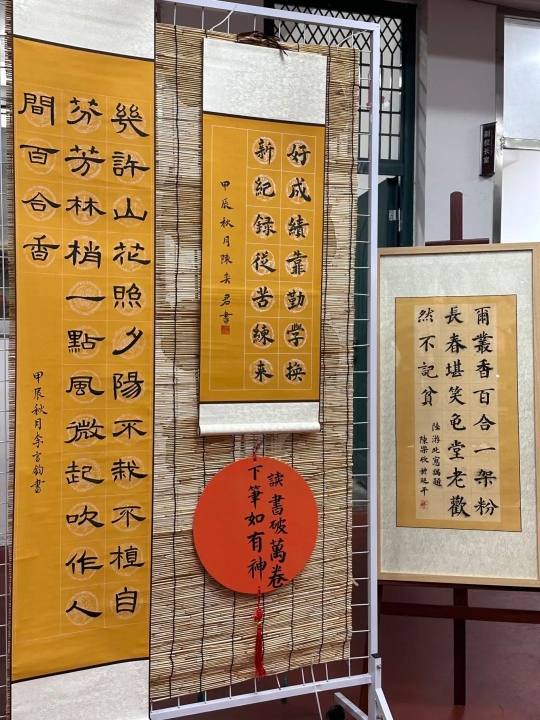 幾許山花照夕陽不栽不植自
芬芳林梢一點風微起吹作人
間百合香
甲辰秋月李言鈞書
好成績靠勤學換
新紀録從苦練来
甲辰秋月陳奕君書
讀書破萬卷
下筆如有神
爾叢香百合一架粉
長春堪笑龟堂老歡
然不記貧
陸游北窓偶題
陳梁欣於延平
副校长室